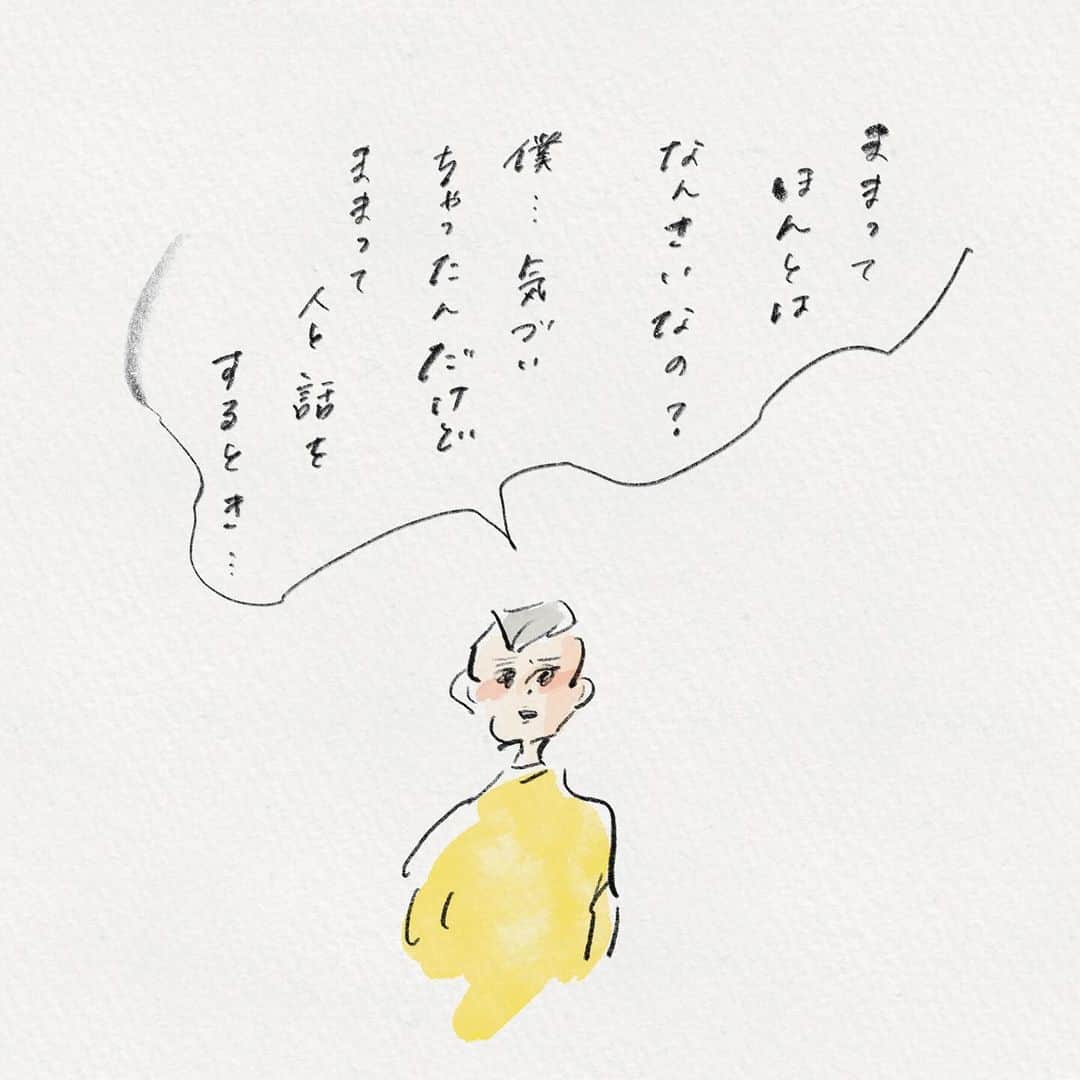 ままって
ほんとは
なんさいなの？
僕…気づい
ちゃったんだけど
ままって
人と話を
するとき…